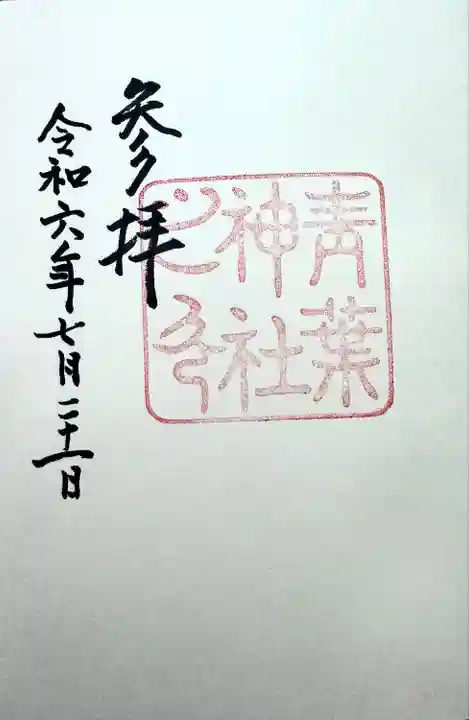 青葉
神社
之印
参拝
令和六年七月二十一日